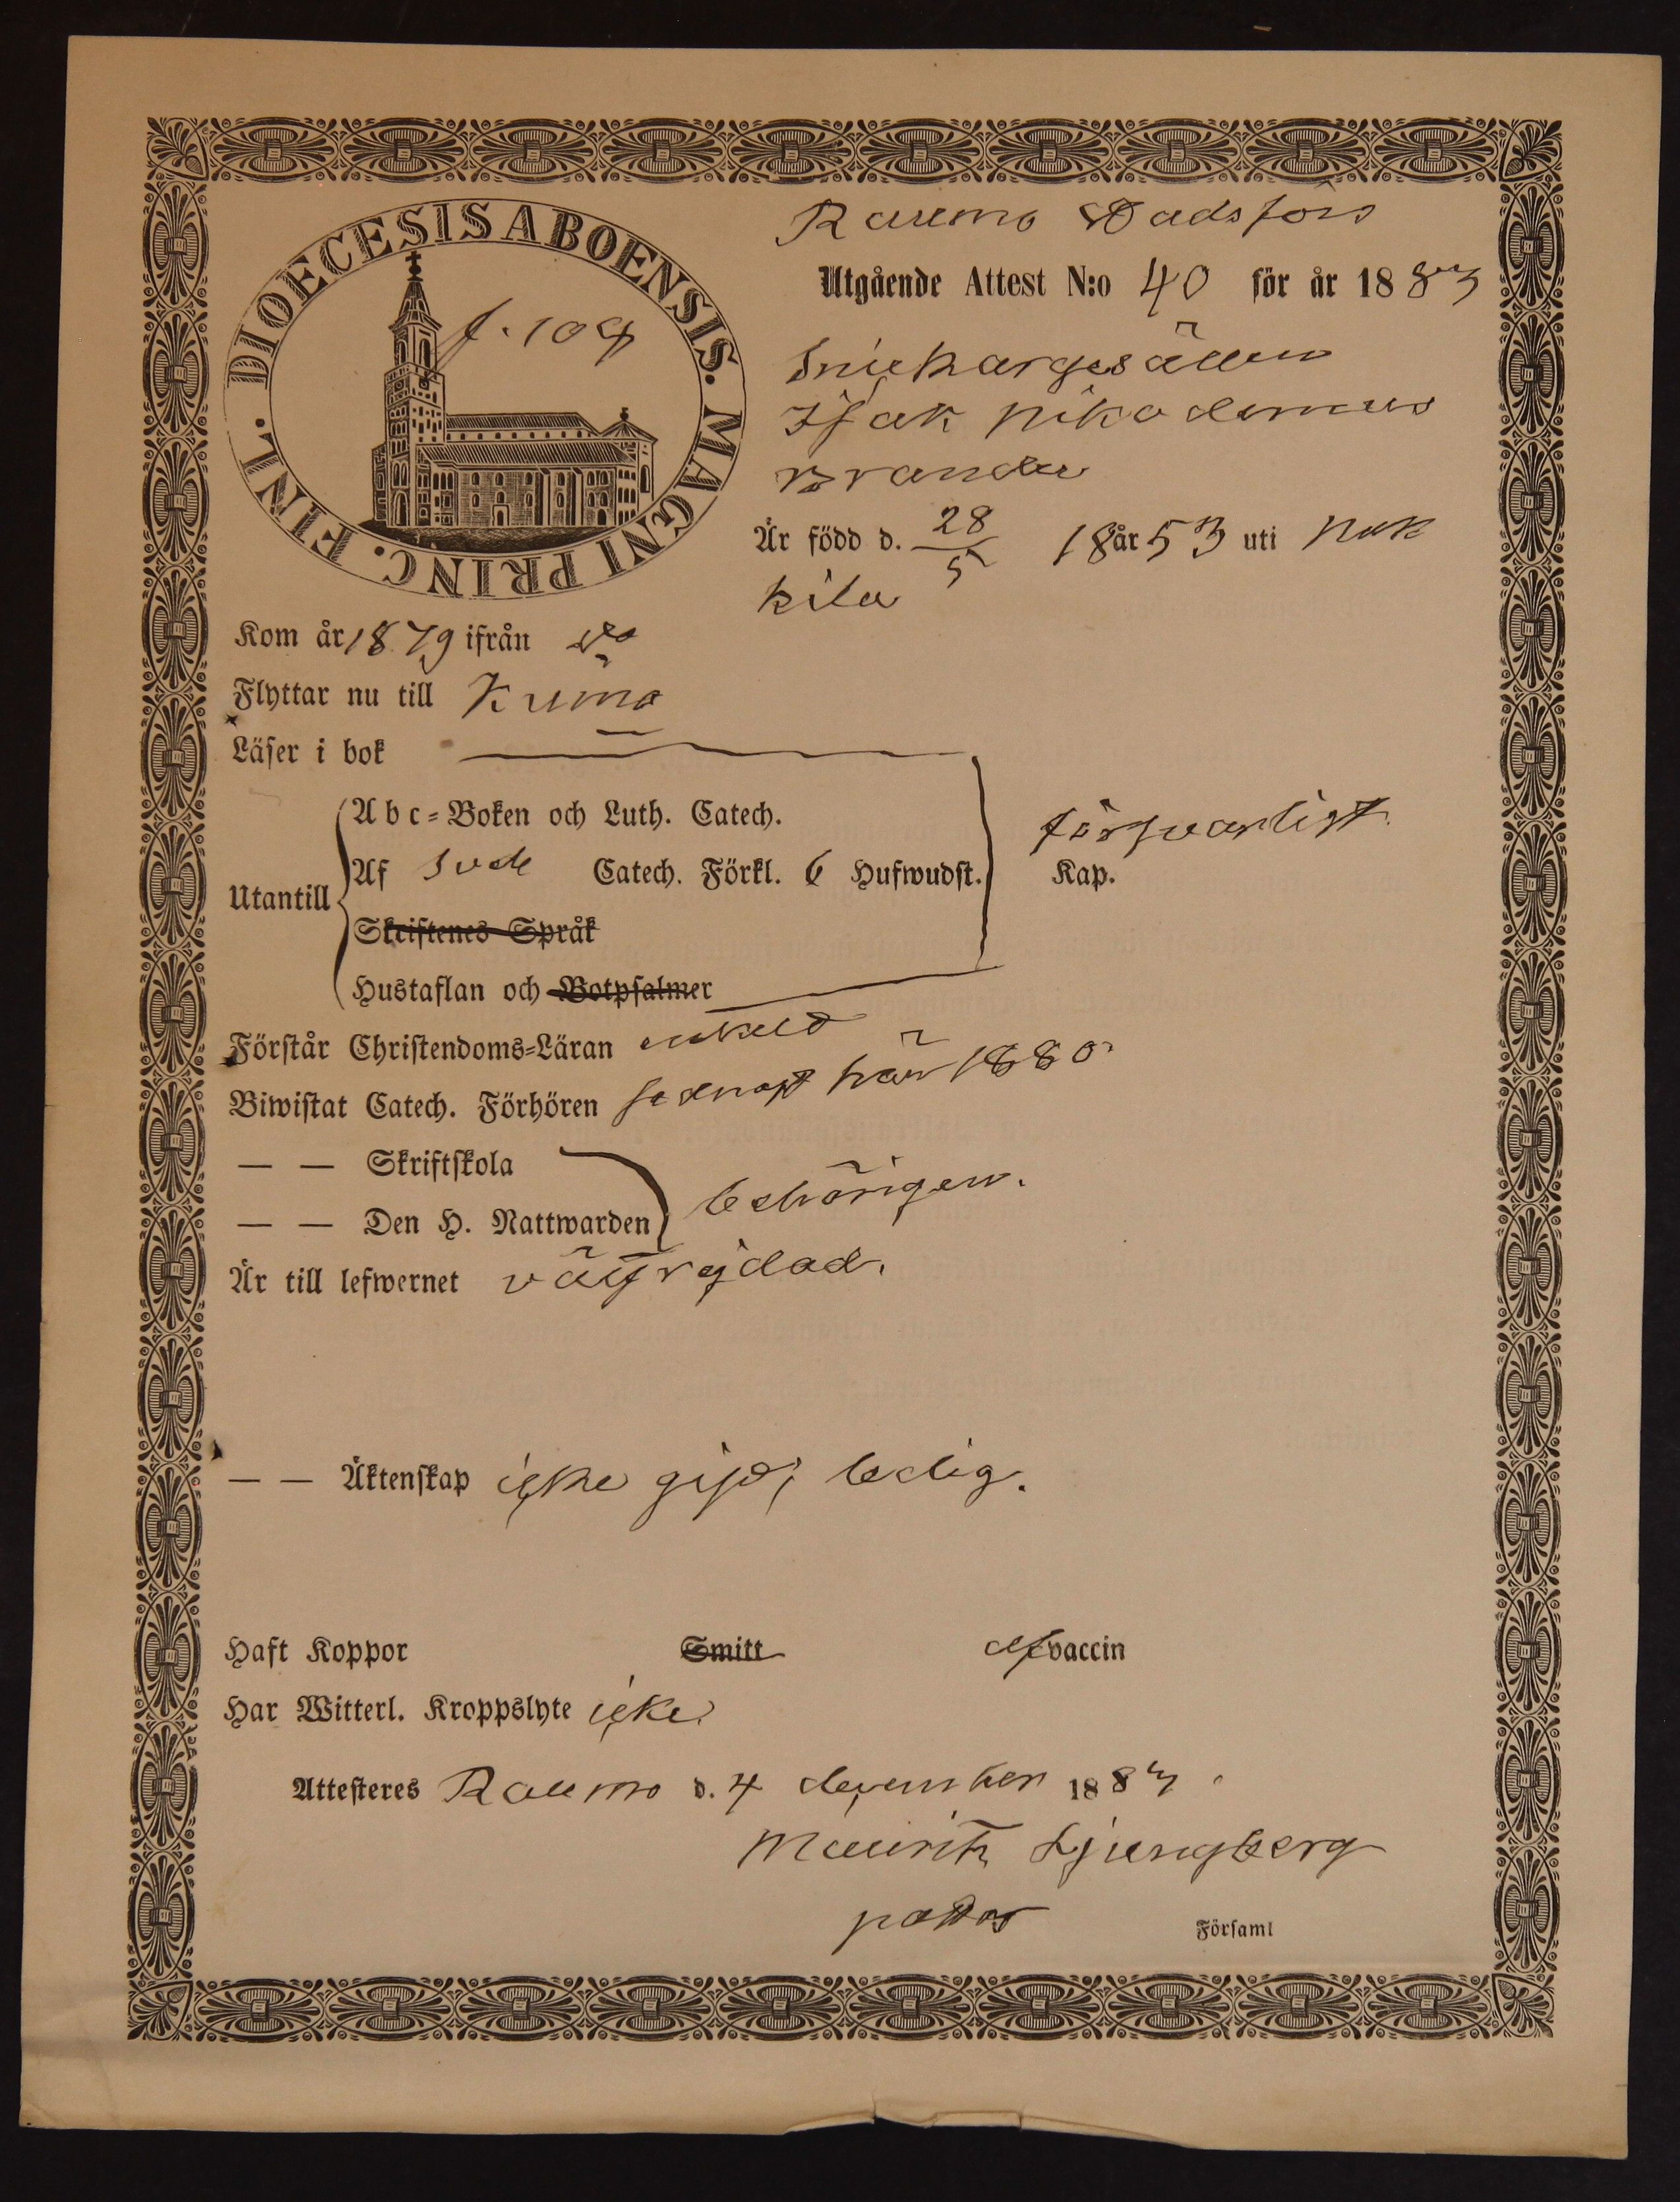 DIOECESIS ABOENSIS. MAGNI PRINC. FINL.
f. 109
Raumo Stadsförs
Utgående Attest N:o 40 för år 1883
Snickargesällen
Isak Nikodemus
Brander
Är född d. 28/5 18år53 uti Nak
kila
Kom år 1879 ifrån do
Flyttar nu till Kumo
Läser i bok
Abc-Boken och Luth. Catech.
försvarligt
Utantill
Af Sveb Catech. Förkl. 6 Hufwudst. Kap.
Skriftenes Språk
Hustaflan och Botpsalmer
Förstår Christendoms-Läran enkelt
Biwistat Catech. Förhören sednast här 1880
— — Skriftskola
behörigen.
— — Den H. Nattwarden
Är till lefwernet välfrejdad.
— — Äktenskap icke gift, ledig.
Haft Koppor Smitt af vaccin
Har Witterl. Kroppslyte icke.
Attesteres Raumo d. 4 december 1883.
Mauritz Ljungberg
pastor
Församl